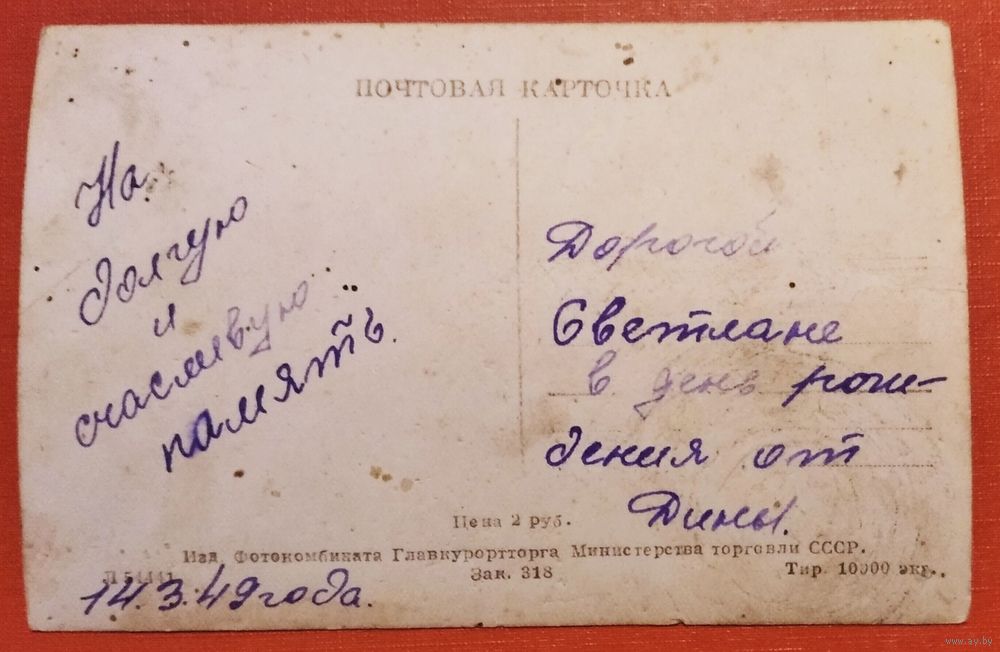 ПОЧТОВАЯ КАРТОЧКА
На
долгую
и
счасливую
память.
Дорогой
Светлане
в день рож-
дения от
Дины.
Цена 2 руб.
Изд. Фотокомбината Главкурортторга Министерства торговли СССР.
Зак. 318
Тир. 10000 экз.
14.3.49 года.
www.ay.by